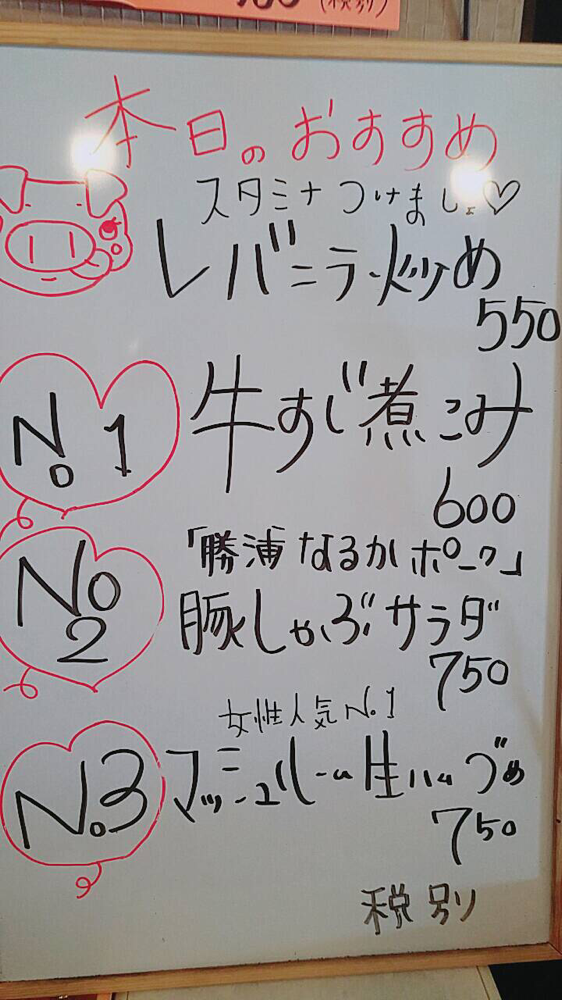 (税別)
本日のおすすめ
スタミナつけましょ♡
レバニラ炒め
550
No.1
牛すじ煮こみ
600
No2
「勝浦なるかポーク」
豚しゃぶサラダ
750
女性人気No.1
No.3
マッシュルーム生ハムづめ
750
税別